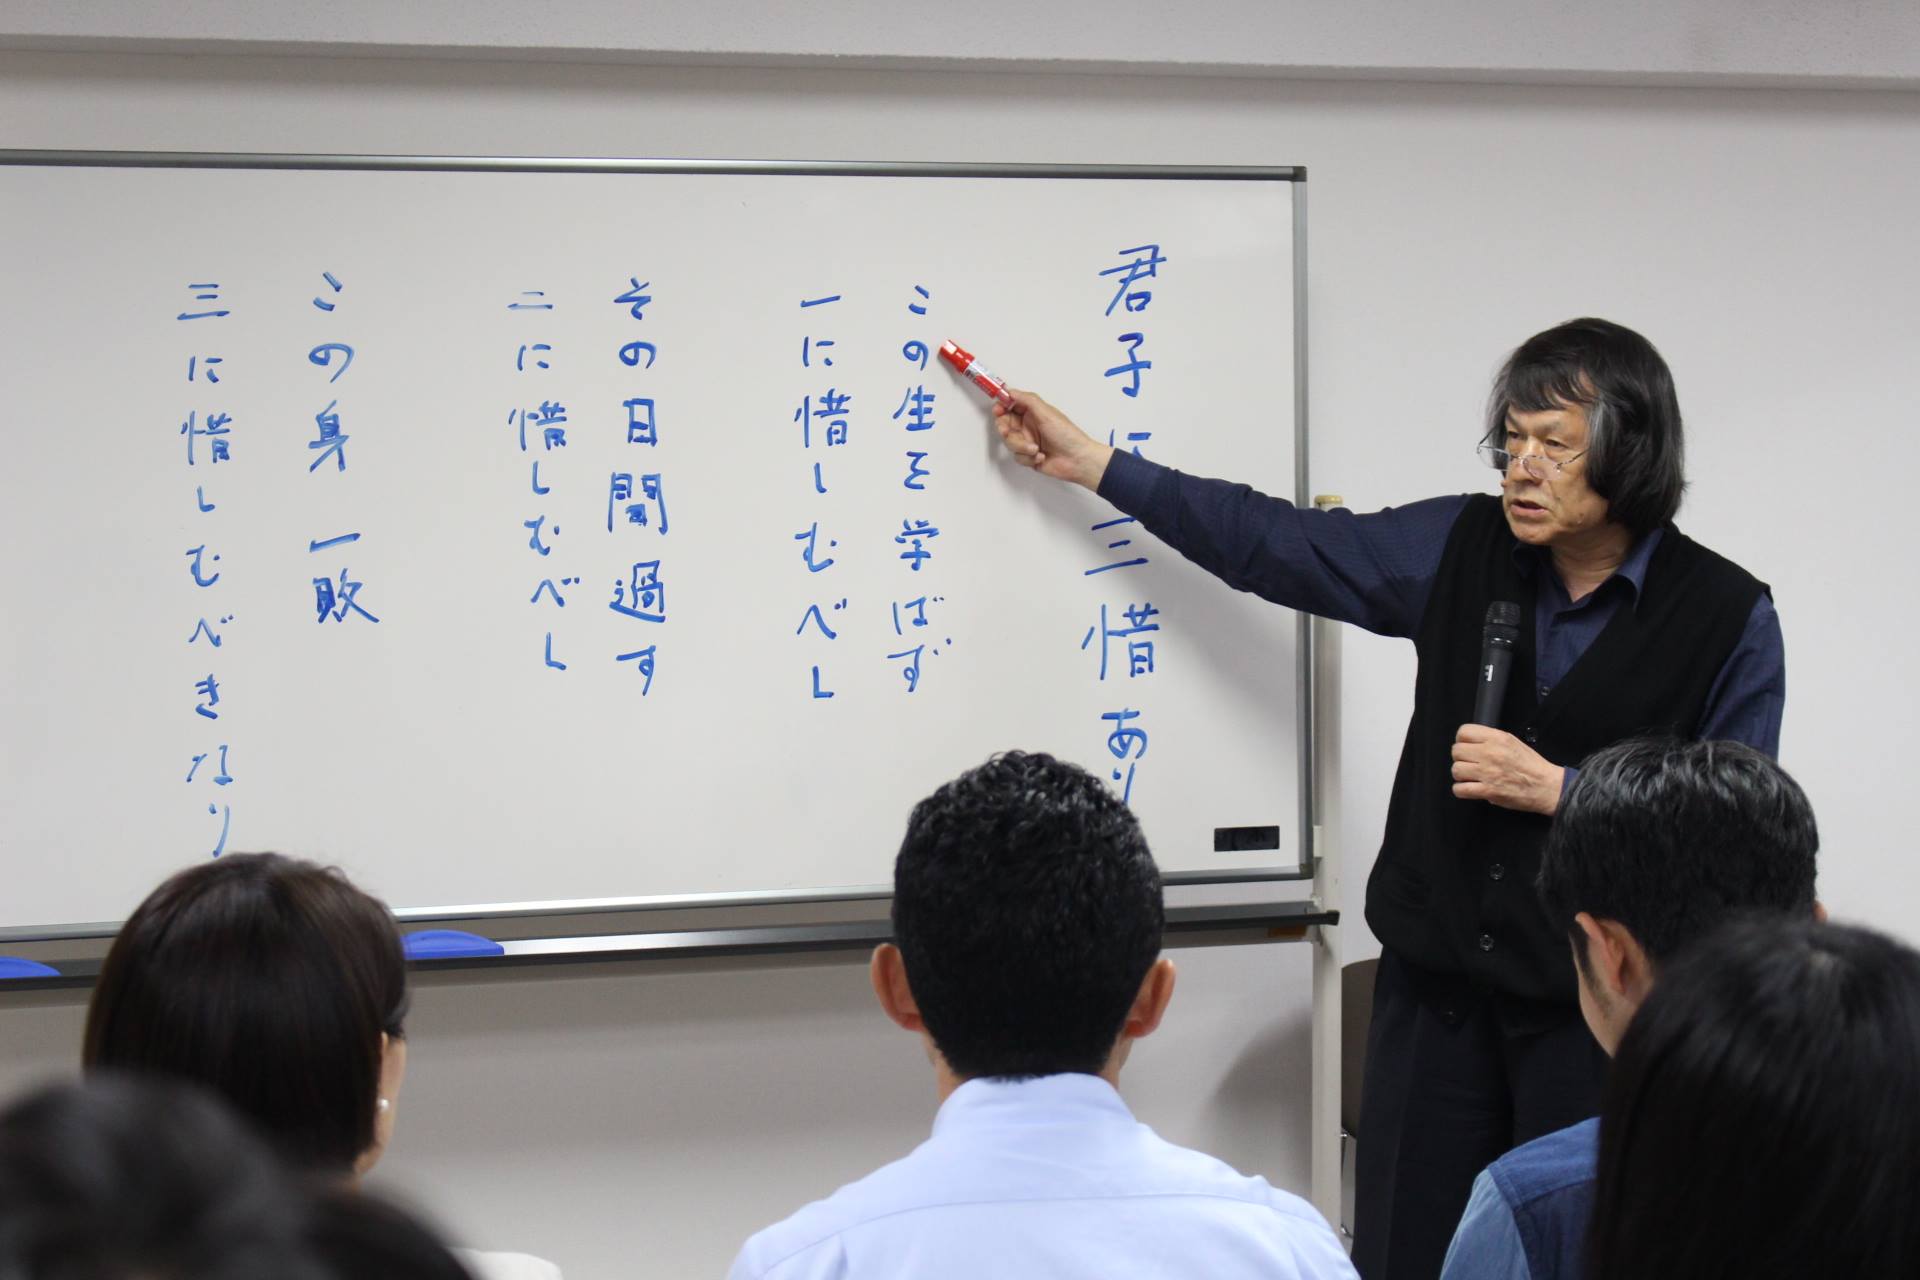 君子に三惜あり
この生を学ばず
一に惜しむべし
その日間過す
二に惜しむべし
この身一敗
三に惜しむべきなり